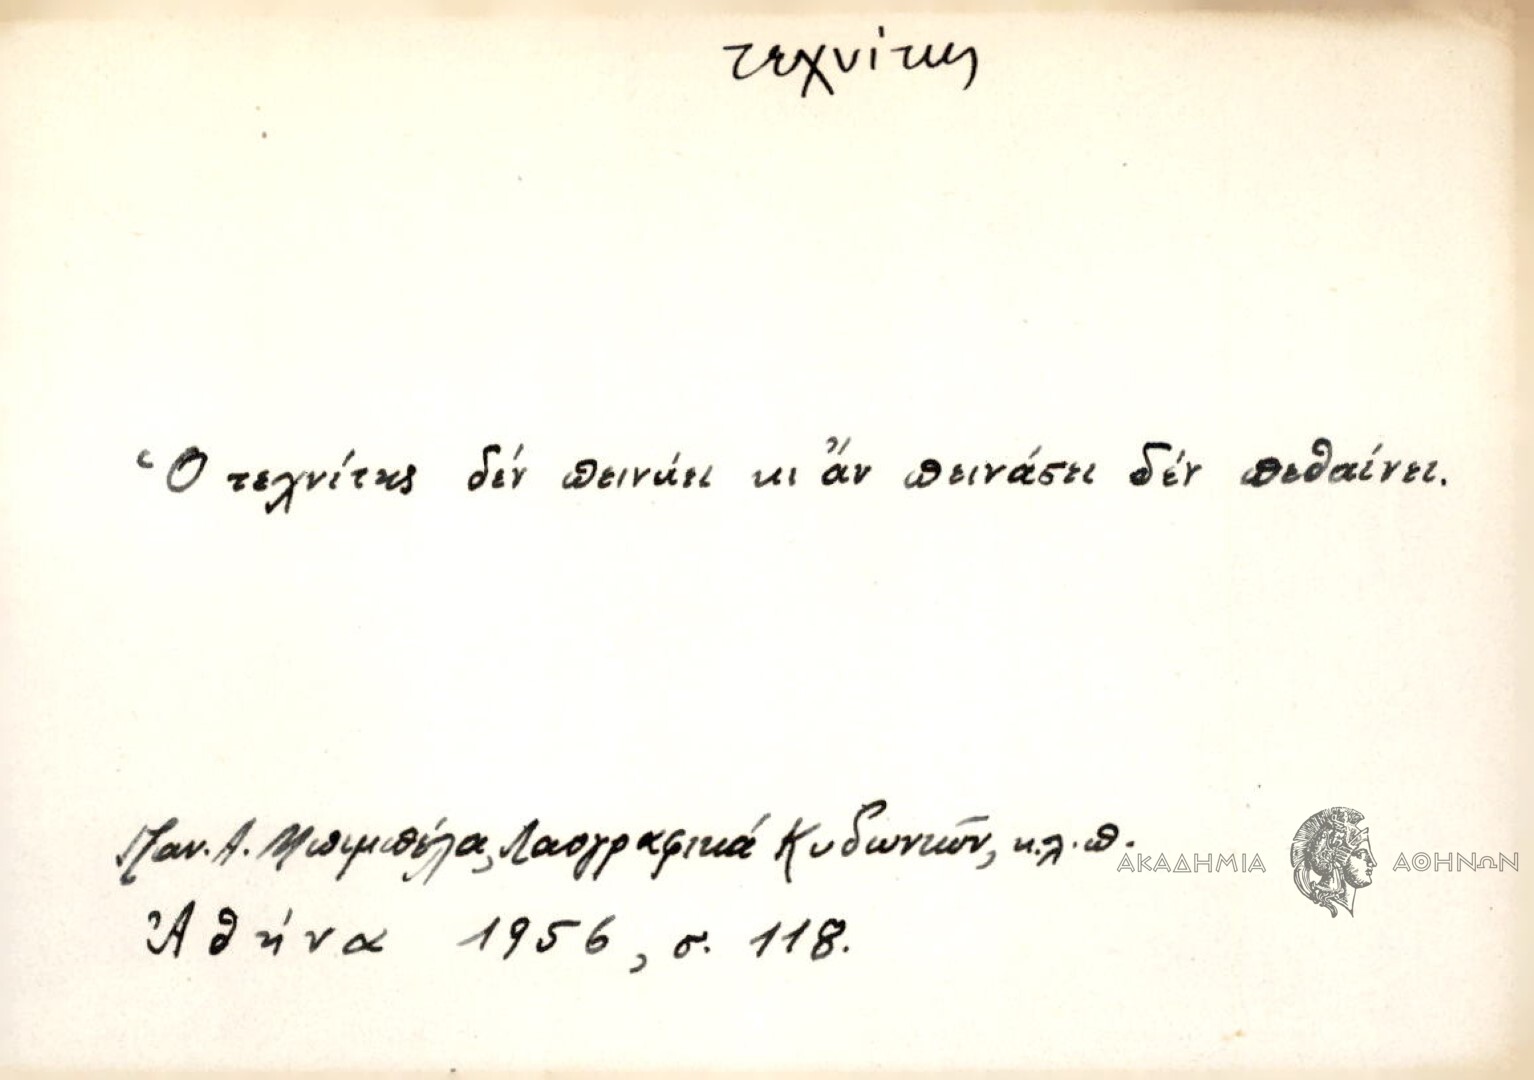 τεχνίτης
Ὁ τεχνίτης δέν πεινάει κι ἄν πεινάσει δέν πεθαίνει.
Παν. Α. Μπιμπέλα, Λαογραφικά Κυδωνιῶν, κ.λ.π.
ΑΚΑΔΗΜΙΑ ΑΘΗΝΩΝ
Ἀθήνα 1956, σ. 118.